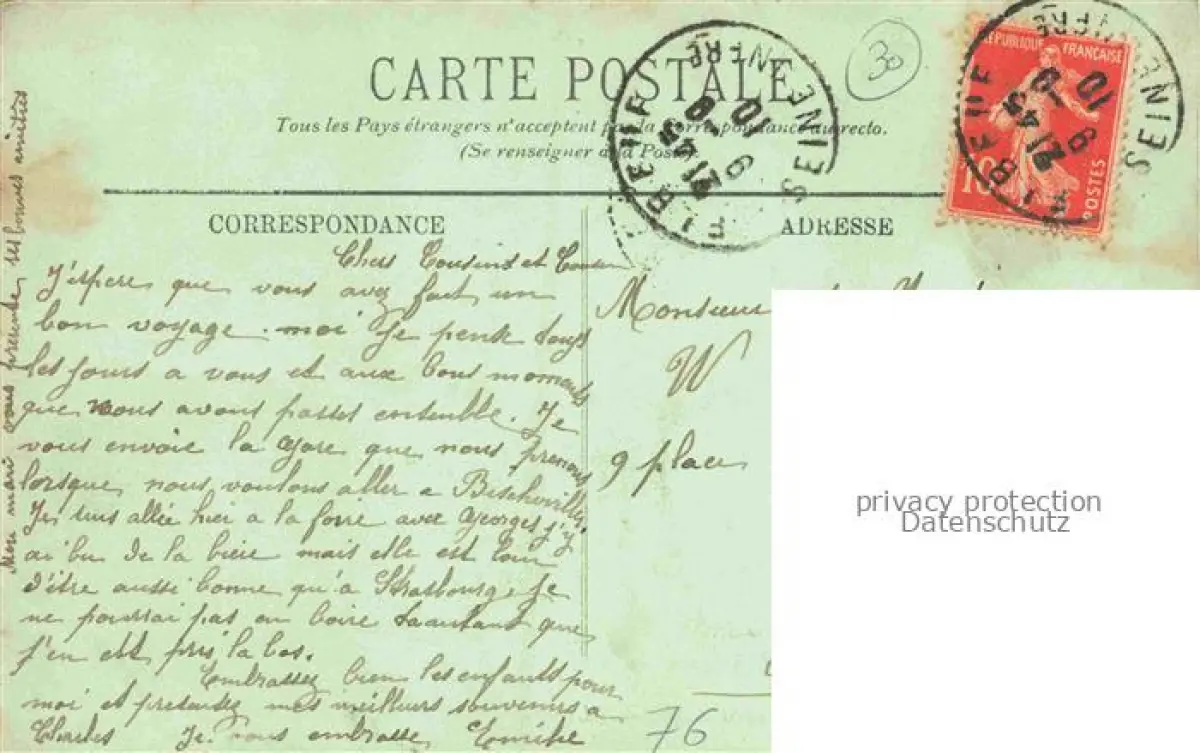 CARTE POSTALE
Tous les Pays étrangers n'acceptent pas la Correspondance au recto.
(Se renseigner à la Poste)
30
RÉPUBLIQUE FRANÇAISE
10
POSTES
ELBEUF
SEINE INFRE
21 45
6 - 9
10
ELBEUF
SEINE INFRE
21 45
6 - 9
10
CORRESPONDANCE
ADRESSE
Chers Cousins et Cousin
J'espere que vous avez fait un
bon voyage. moi je pense tous
les jours a vous et aux bons moments
que nous avons passes ensemble. Je
vous envoie la gare que nous prenons
lorsque nous voulons aller a Bischwiller.
Je suis allée hier a la foire avec Georges j'y
ai bu de la biere mais elle est loin
d'être aussi bonne qu'a Strasbourg. Je
ne pourrai pas en boire autant que
j'en ai pris la bas.
Embrassez bien les enfants pour
moi et presentez mes meilleurs souvenirs a
Charles Je vous embrasse
Mon mari vous presente ses bonnes amities
Monsieur
W
9 place
76
privacy protection
Datenschutz